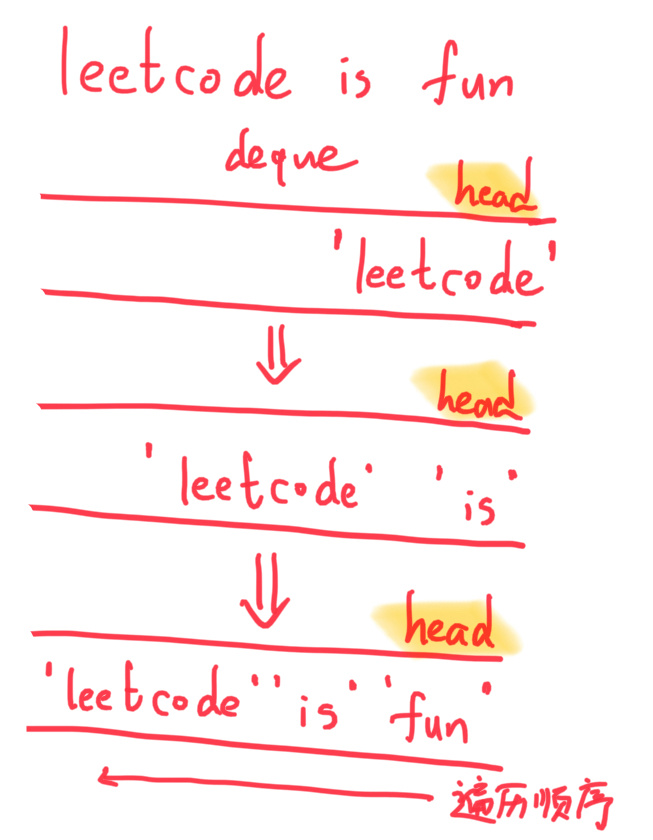 leetcode is fun
deque
head
'leetcode'
head
'leetcode' 'is'
head
'leetcode' 'is' 'fun'
遍历顺序